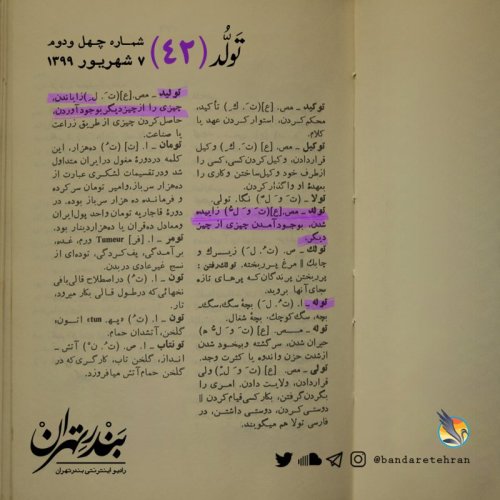 تَولُّد (۴۲) شماره چهل ودوم
۷ شهریور ۱۳۹۹
توکید ـ مص. [ع] (تَ. ک ِ) تأکید،
محکم کردن، استوار کردن عهد یا
کلام.
توکیل ـ مص. [ع] (تَ. ک ِ) وکیل
قراردادن، وکیل کردن کسی، کسی را
ازطرف خود وکیل ساختن وکاری را
بعهدهٔ او واگذار کردن.
تولا ـ (تَ وَ) نگا. تولی.
تولد ـ مص. [ع] (تَ وَ لّ ُ) زاییده
شدن، بوجود آمدن چیزی از چیز
دیگر.
تولك ـ ص. (تُ. لَ) زیرك و
چابك || مرغ پرریخته. تولك رفتن:
پرریختن پرندگان که پرهای تازه
بجای آنها بروید.
توله ـ ا. (تُ. لَ) بچهٔ سگ، سگ
بچه، سگ کوچك، بچهٔ شغال.
توله ـ مص. [ع] (تَ وَ لّ ُ ه)
حیران شدن، سرگشته وبیخود شدن
ازشدت حزن واندوه یا کثرت وجد.
تولی ـ مص. [ع] (تَ وَ لّ) ولی
قراردادن، ولایت دادن. امری را
بگردن گرفتن، بکار کسی قیام کردن ||
دوستی کردن، دوستی داشتن، در
فارسی تولا هم میگویند.
تولید ـ مص. [ع] (تَ. ل ِ) زایاندن،
چیزی را ازچیز دیگر بوجود آوردن،
حاصل کردن چیزی از طریق زراعت
یا صناعت.
تومان ـ ا. [ت] (تُ) ده هزار، این
کلمه دردورهٔ مغول درایران متداول
شد ودرتقسیمات لشکری عبارت از
ده هزار سرباز، وامیر تومان سرکرده
و فرمانده ده هزار سرباز بوده. در
دورهٔ قاجاریه تومان واحد پول ایران
ومعادل ده قران یا ده هزار دینار بود.
تومر ـ ا. [فر] Tumeur ورم، غده،
برآمدگی، پف کردگی، توده ای از
نسج غیرعادی دربدن.
تون ـ ا. (تُ) دراصطلاح قالی بافی
نخهائی که درطول قالی بکار میرود،
تار.
تون ـ ا. (تُ) «په. tun» اتون،
گلخن، آتشدان حمام.
تونتاب ـ ا. ص. (تُ. ن ْ) آتش ـ
انداز، گلخن تاب، کارگری که در
گلخن حمام آتش میافروزد.
بندرتهران
رادیو اینترنتی بندرتهران
@bandaretehran